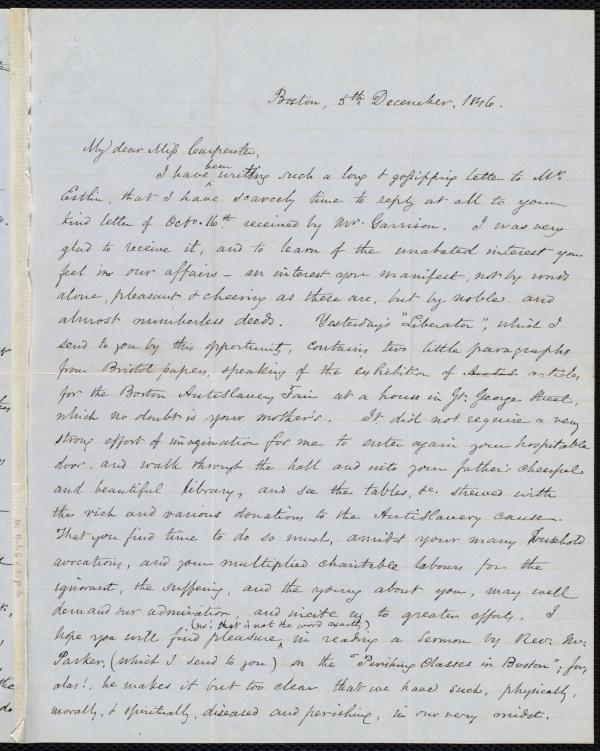 Boston, 5th December. 1846.
My dear Miss Carpenter,
been
I have writting such a long & gossipping letter to Mr.
Estlin, that I have scarcely time to reply at all to your
kind letter of Octo. 16th received by Mr. Garrison. I was very
glad to receive it, and to learn of the unabated interest you
feel in our affairs – an interest you manifest, not by words
alone, pleasant & cheering as these are, but by noble and
almost numberless deeds. Yesterday's "Liberator", which I
send to you by this opportunity, contains two little paragraphs
from Bristol papers, speaking of the exhibition of articles
for the Boston Antislavery Fair at a house in Gt. George Street,
which no doubt is your mother's. It did not require a very
strong effort of imagination for me to enter again your hospitable
door, and walk through the hall and into your father's cheerful
and beautiful library, and see the tables, &c. strewed with
the rich and various donations to the AntiSlavery cause.
That you find time to do so much, amidst your many household
avocations, and your multiplied charitable labours for the
ignorant, the suffering, and the young about you, may well
demand our admiration, and incite us to greater efforts. I
(no! that is not the word exactly)
hope you will find pleasure, in reading a Sermon by Rev. Mr.
Parker, (which I send to you) on the "Perishing Classes in Boston"; for,
alas!, he makes it but too clear that we have such, physically,
morally, & spiritually, diseased and perishing, in our very midst.